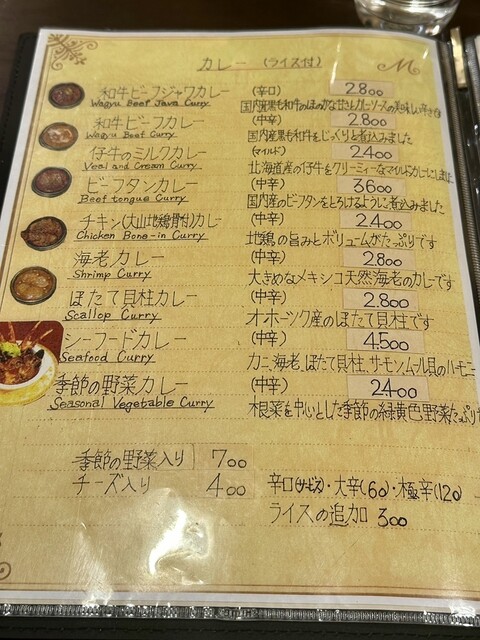 カレー (ライス付)
M
和牛ビーフジャワカレー (辛口) 2.800
Wagyu Beef Java Curry 国内産黒毛和牛のほのかな甘さとカレーソースの美味しい辛さです
和牛ビーフカレー (中辛) 2.800
Wagyu Beef Curry 国内産黒毛和牛をじっくりと煮込みました
仔牛のミルクカレー (マイルド) 2.400
Veal and Cream Curry 北海道産の仔牛をクリーミィーなマイルドカレーにしました
ビーフタンカレー (中辛) 3600
Beef tongue Curry 国内産のビーフタンをとろけるように煮込みました
チキン(大山地鶏骨付)カレー (中辛) 2.400
Chicken Bone-in Curry 地鶏の旨みとボリュームがたっぷりです
海老カレー (中辛) 2.800
Shrimp Curry 大きめなメキシコ天然海老のカレーです
ほたて貝柱カレー (中辛) 2.800
Scallop Curry オホーツク産のほたて貝柱です
シーフードカレー (中辛) 4.500
Seafood Curry カニ、海老、ほたて貝柱、サーモン、ムール貝のハーモニ
季節の野菜カレー (中辛) 2.400
Seasonal Vegetable Curry 根菜を中心とした季節の緑黄色野菜たっぷり
季節の野菜入り 700
チーズ入り 400
辛口(サービス)・大辛(60)・極辛(120)
ライスの追加 300